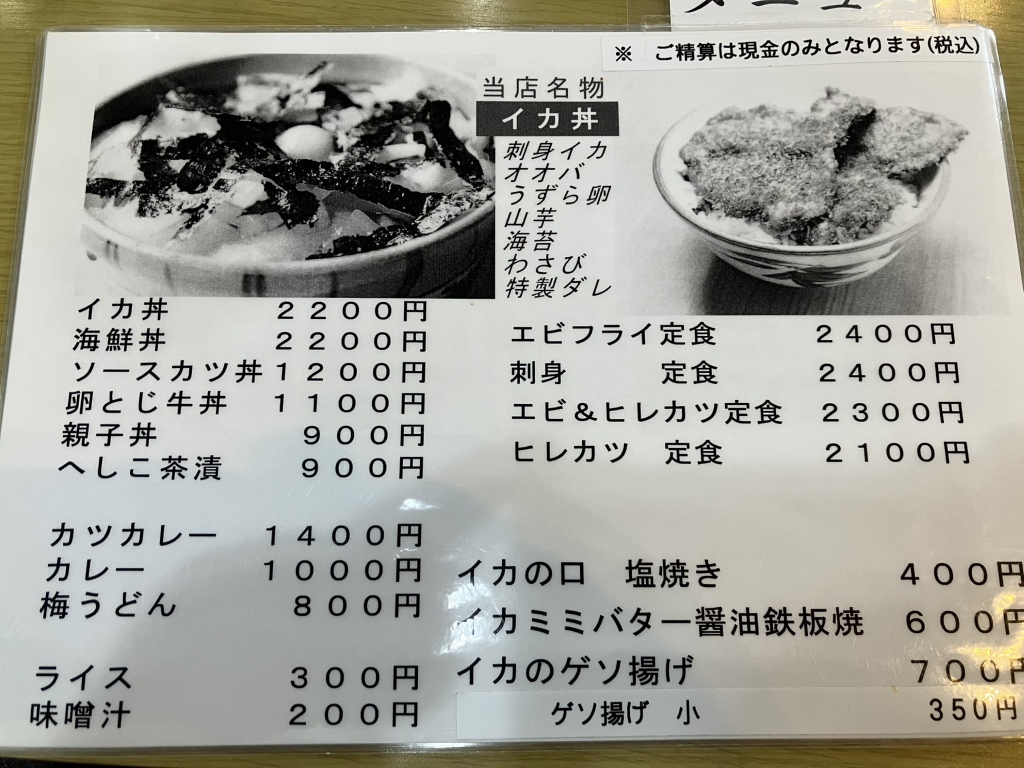 メニュー
※ ご精算は現金のみとなります(税込)
当店名物
イカ丼
刺身イカ
オオバ
うずら卵
山芋
海苔
わさび
特製ダレ
イカ丼 2200円
海鮮丼 2200円
ソースカツ丼 1200円
卵とじ牛丼 1100円
親子丼 900円
へしこ茶漬 900円
カツカレー 1400円
カレー 1000円
梅うどん 800円
ライス 300円
味噌汁 200円
エビフライ定食 2400円
刺身 定食 2400円
エビ&ヒレカツ定食 2300円
ヒレカツ 定食 2100円
イカの口 塩焼き 400円
イカミミバター醤油鉄板焼 600円
イカのゲソ揚げ 700円
ゲソ揚げ 小 350円